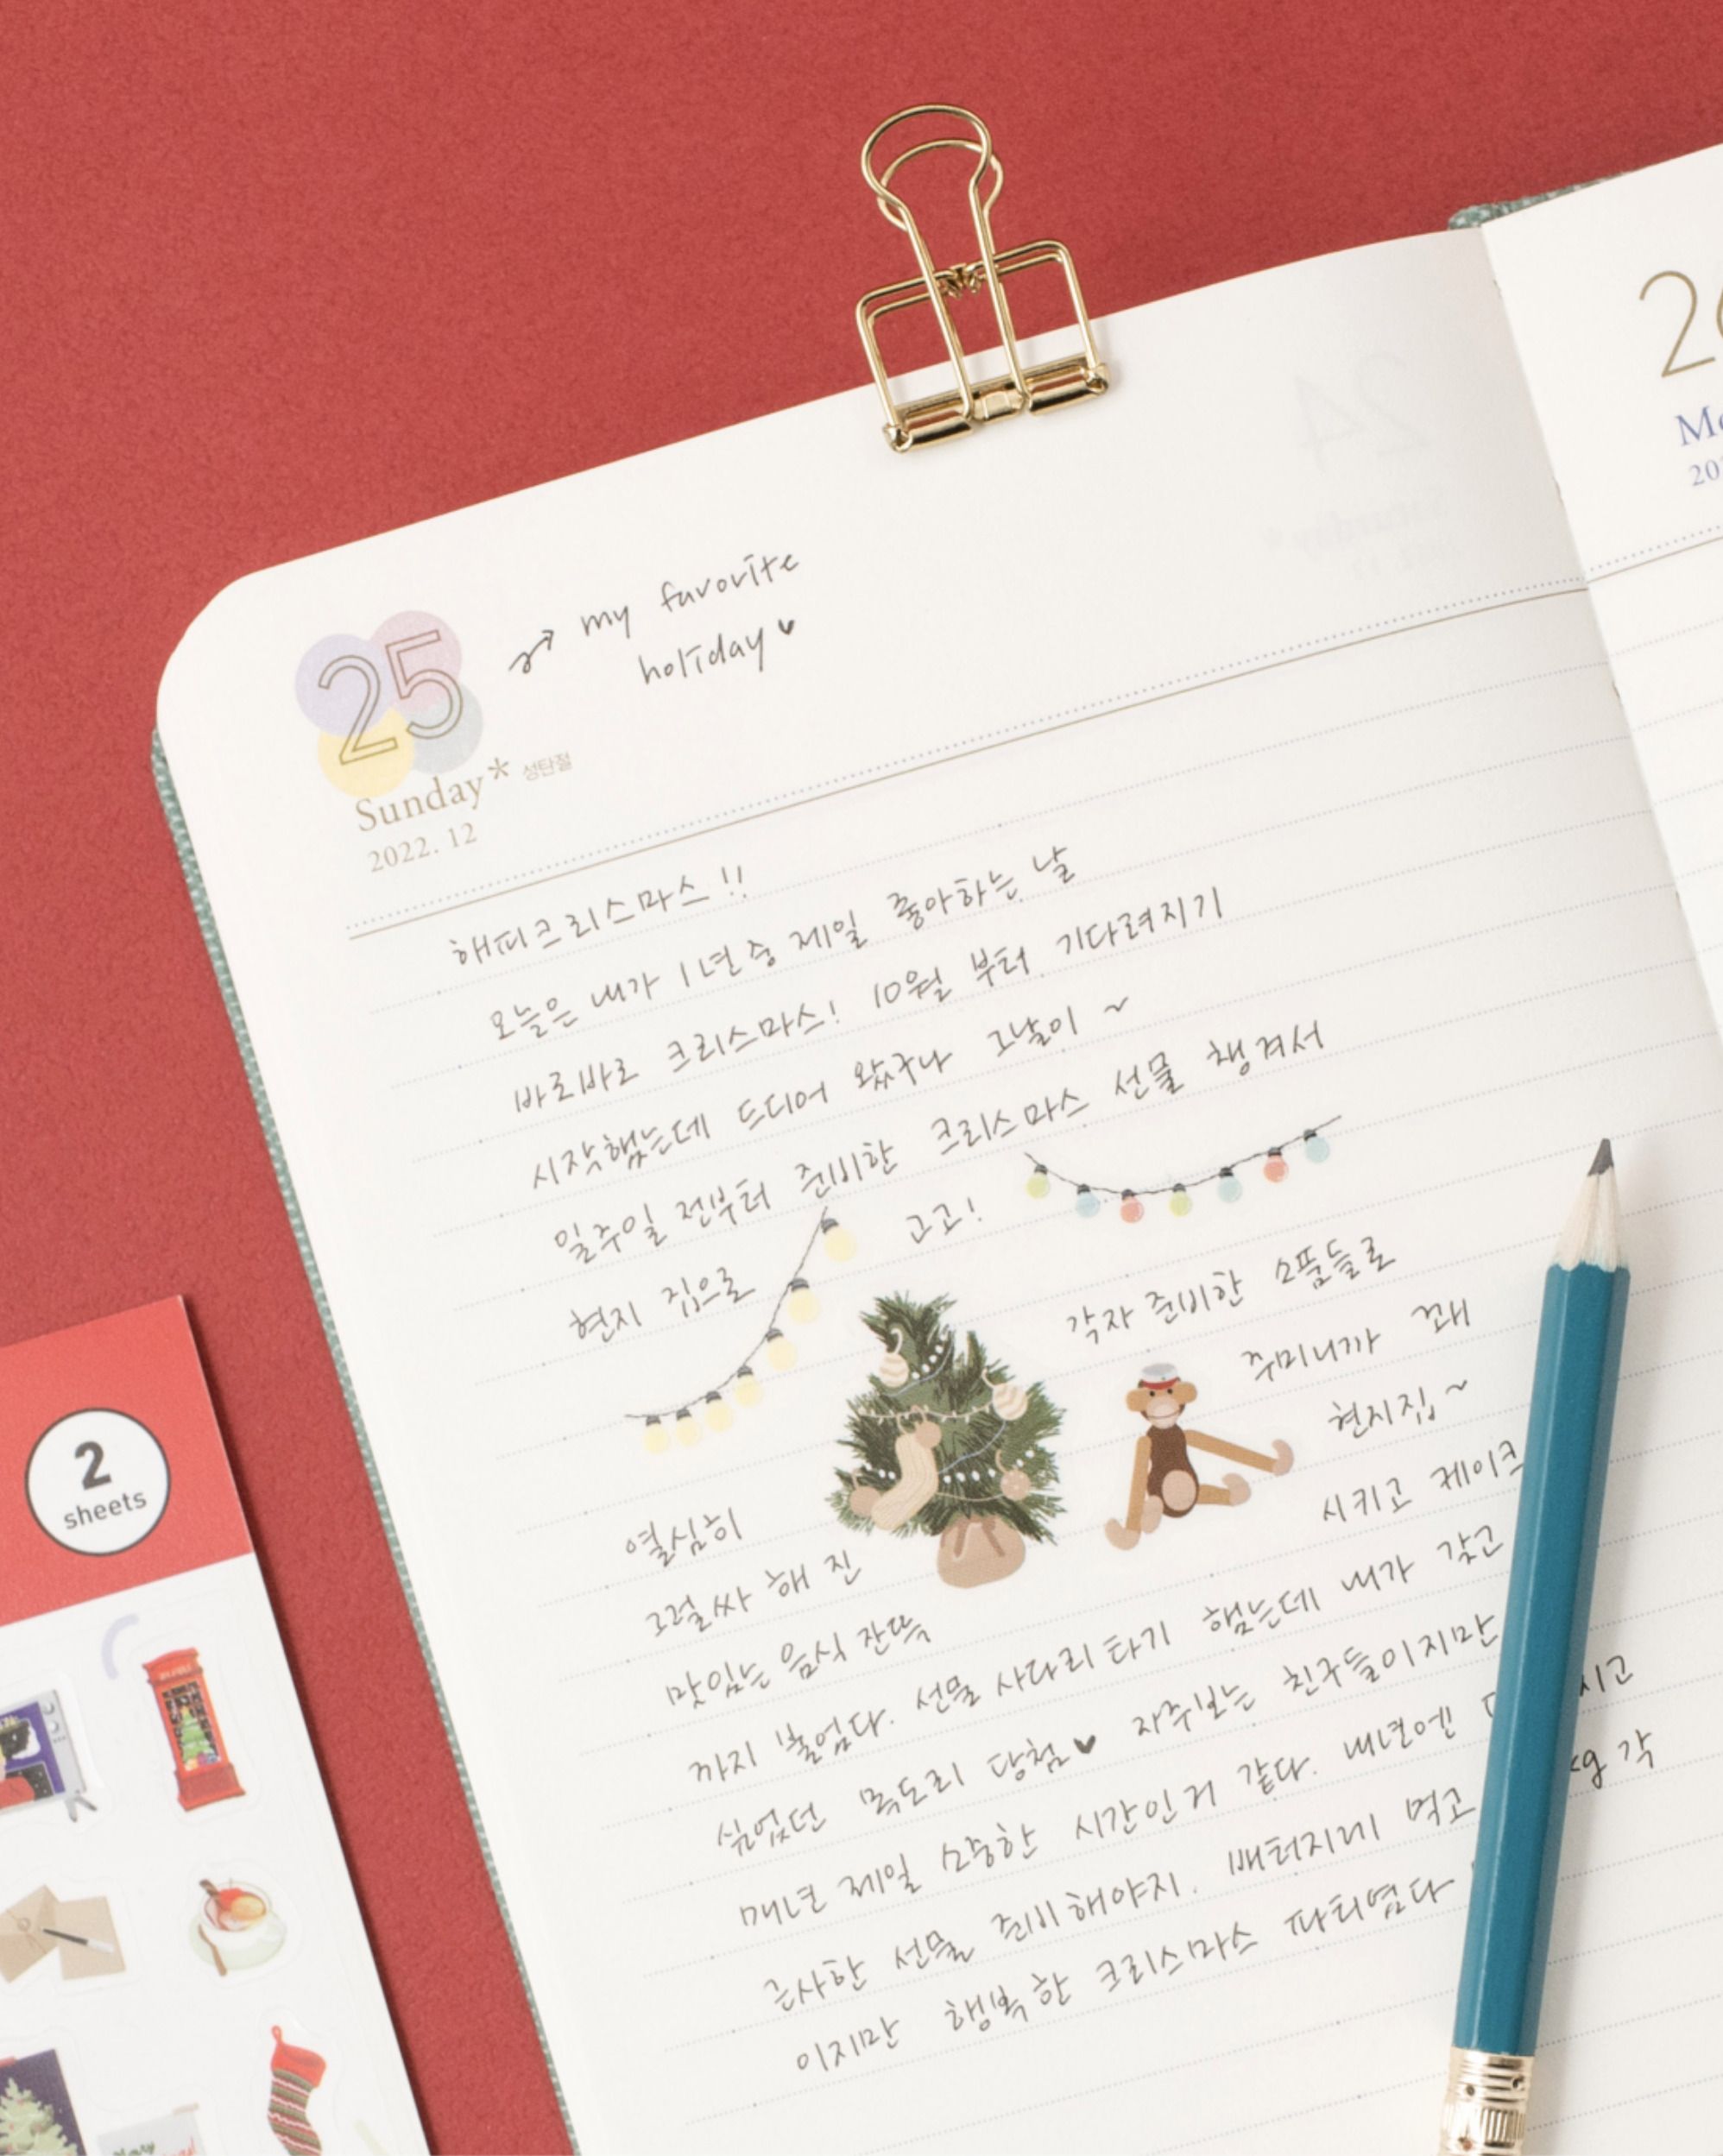 25
my favorite
holiday
Sunday* 성탄절
2022. 12
해피크리스마스!!
오늘은 내가 1년 중 제일 좋아하는 날
바로바로 크리스마스! 10월 부터 기다려지기
시작했는데 드디어 왔구나 그날이 ~
일주일 전부터 준비한 크리스마스 선물 챙겨서
현지 집으로 고고!
각자 준비한 소품들로
열심히 꾸미니까 꽤
그럴싸 해 진 현지집~
맛있는 음식 잔뜩 시키고 케이크
까지 불었다. 선물 사다리 타기 했는데 내가 갖고
싶었던 목도리 당첨♥ 자주보는 친구들이지만
매년 제일 소중한 시간인거 같다. 내년엔 시고
근사한 선물 준비해야지. 배터지게 먹고 kg 각
이지만 행복한 크리스마스 파티였다
26
24
2
sheets